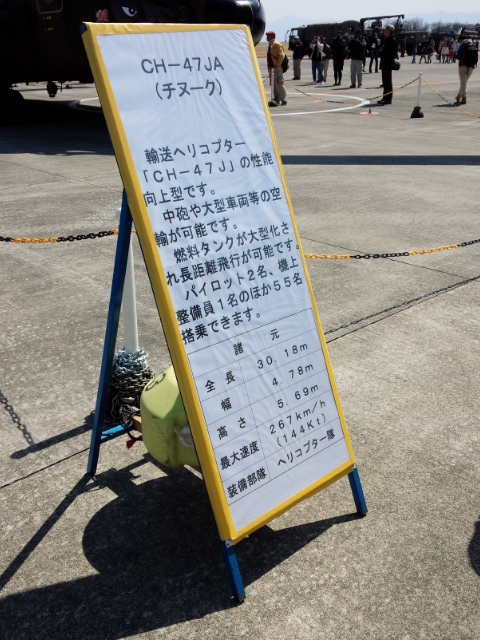 CH－47JA
（チヌーク）
輸送ヘリコプター
「CH－47J」の性能
向上型です。
中砲や大型車両等の空
輸が可能です。
燃料タンクが大型化さ
れ長距離飛行が可能です。
パイロット2名、機上
整備員1名のほか55名
搭乗できます。
諸　元
全長　30.18m
幅　4.78m
高さ　5.69m
最大速度　267km/h
（144Kt）
装備部隊　ヘリコプター隊